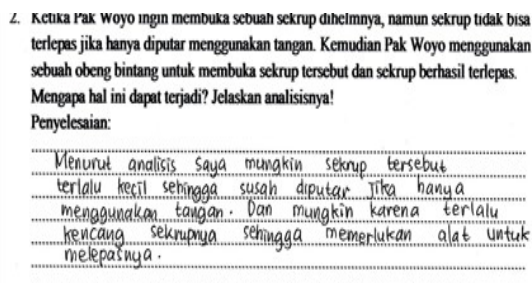 2. Ketika Pak Woyo ingin membuka sebuah sekrup dihelmnya, namun sekrup tidak bisa
terlepas jika hanya diputar menggunakan tangan. Kemudian Pak Woyo menggunakan
sebuah obeng bintang untuk membuka sekrup tersebut dan sekrup berhasil terlepas.
Mengapa hal ini dapat terjadi? Jelaskan analisisnya!
Penyelesaian:
Menurut analisis saya mungkin sekrup tersebut
terlalu kecil sehingga susah diputar jika hanya
menggunakan tangan. Dan mungkin karena terlalu
kencang sekrupnya sehingga memerlukan alat untuk
melepasnya.